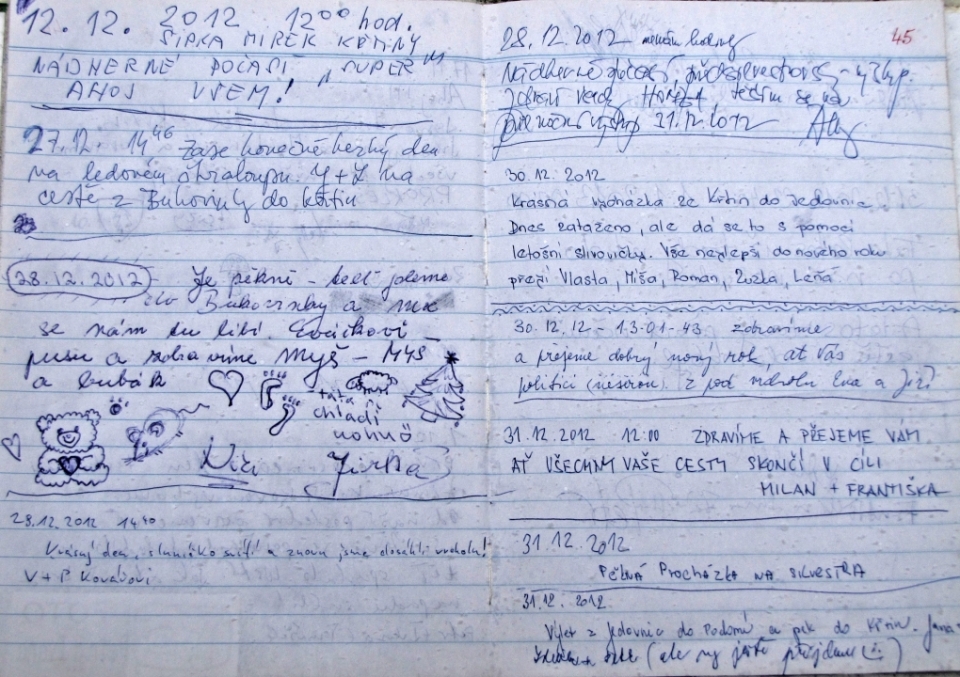 12.12. 2012 12⁰⁰ hod.
ŠIPKA MIREK KŘTINY
NÁDHERNÉ POČASÍ „SUPER"
AHOJ VŠEM!
27.12. 14⁴⁶ Zase konečně hezký den
na ledovém škraloupu. Y+Z na
cestě z Bukovinky do Křtin
28.12.2012 - Je pěkně - teď jdeme
do Bukovinky a moc
se nám tu líbí.
pusu a zdravíme MYŠ - MYŠ
a bubák
+ táta si
chladí
nohu
Jirka
29.12.2012 14⁴⁰
Krásný den, sluníčko svítí a znovu jsme dosáhli vrcholu!
V + P Kovářovi
28.12.2012
45
Nádherné počasí, předsilvestrovský - výstup.
Zdraví všechny HONZA, těším se na
půlnoční výstup 31.12.2012
30.12.2012
Krásná vycházka ze Křtin do Jedovnic
Dnes zataženo, ale dá se to s pomocí
letošní slivovičky. Vše nejlepší do nového roku
přejí Vlasta, Míša, Roman, Zuzka, Léňa
30.12.12 - 13.01-43 zdravíme
a přejeme dobrý nový rok, ať Vás
politici z pod Eva a Jiří
31.12.2012 12:00 ZDRAVÍME A PŘEJEME VÁM
AŤ VŠECHNY VAŠE CESTY SKONČÍ V CÍLI
MILAN + FRANTIŠKA
31.12.2012
PĚKNÁ PROCHÁZKA NA SILVESTRA
31.12.2012
Výlet z Jedovnic do Podomí a pak do Křtin. Jana +
(ale my ještě přijdeme)